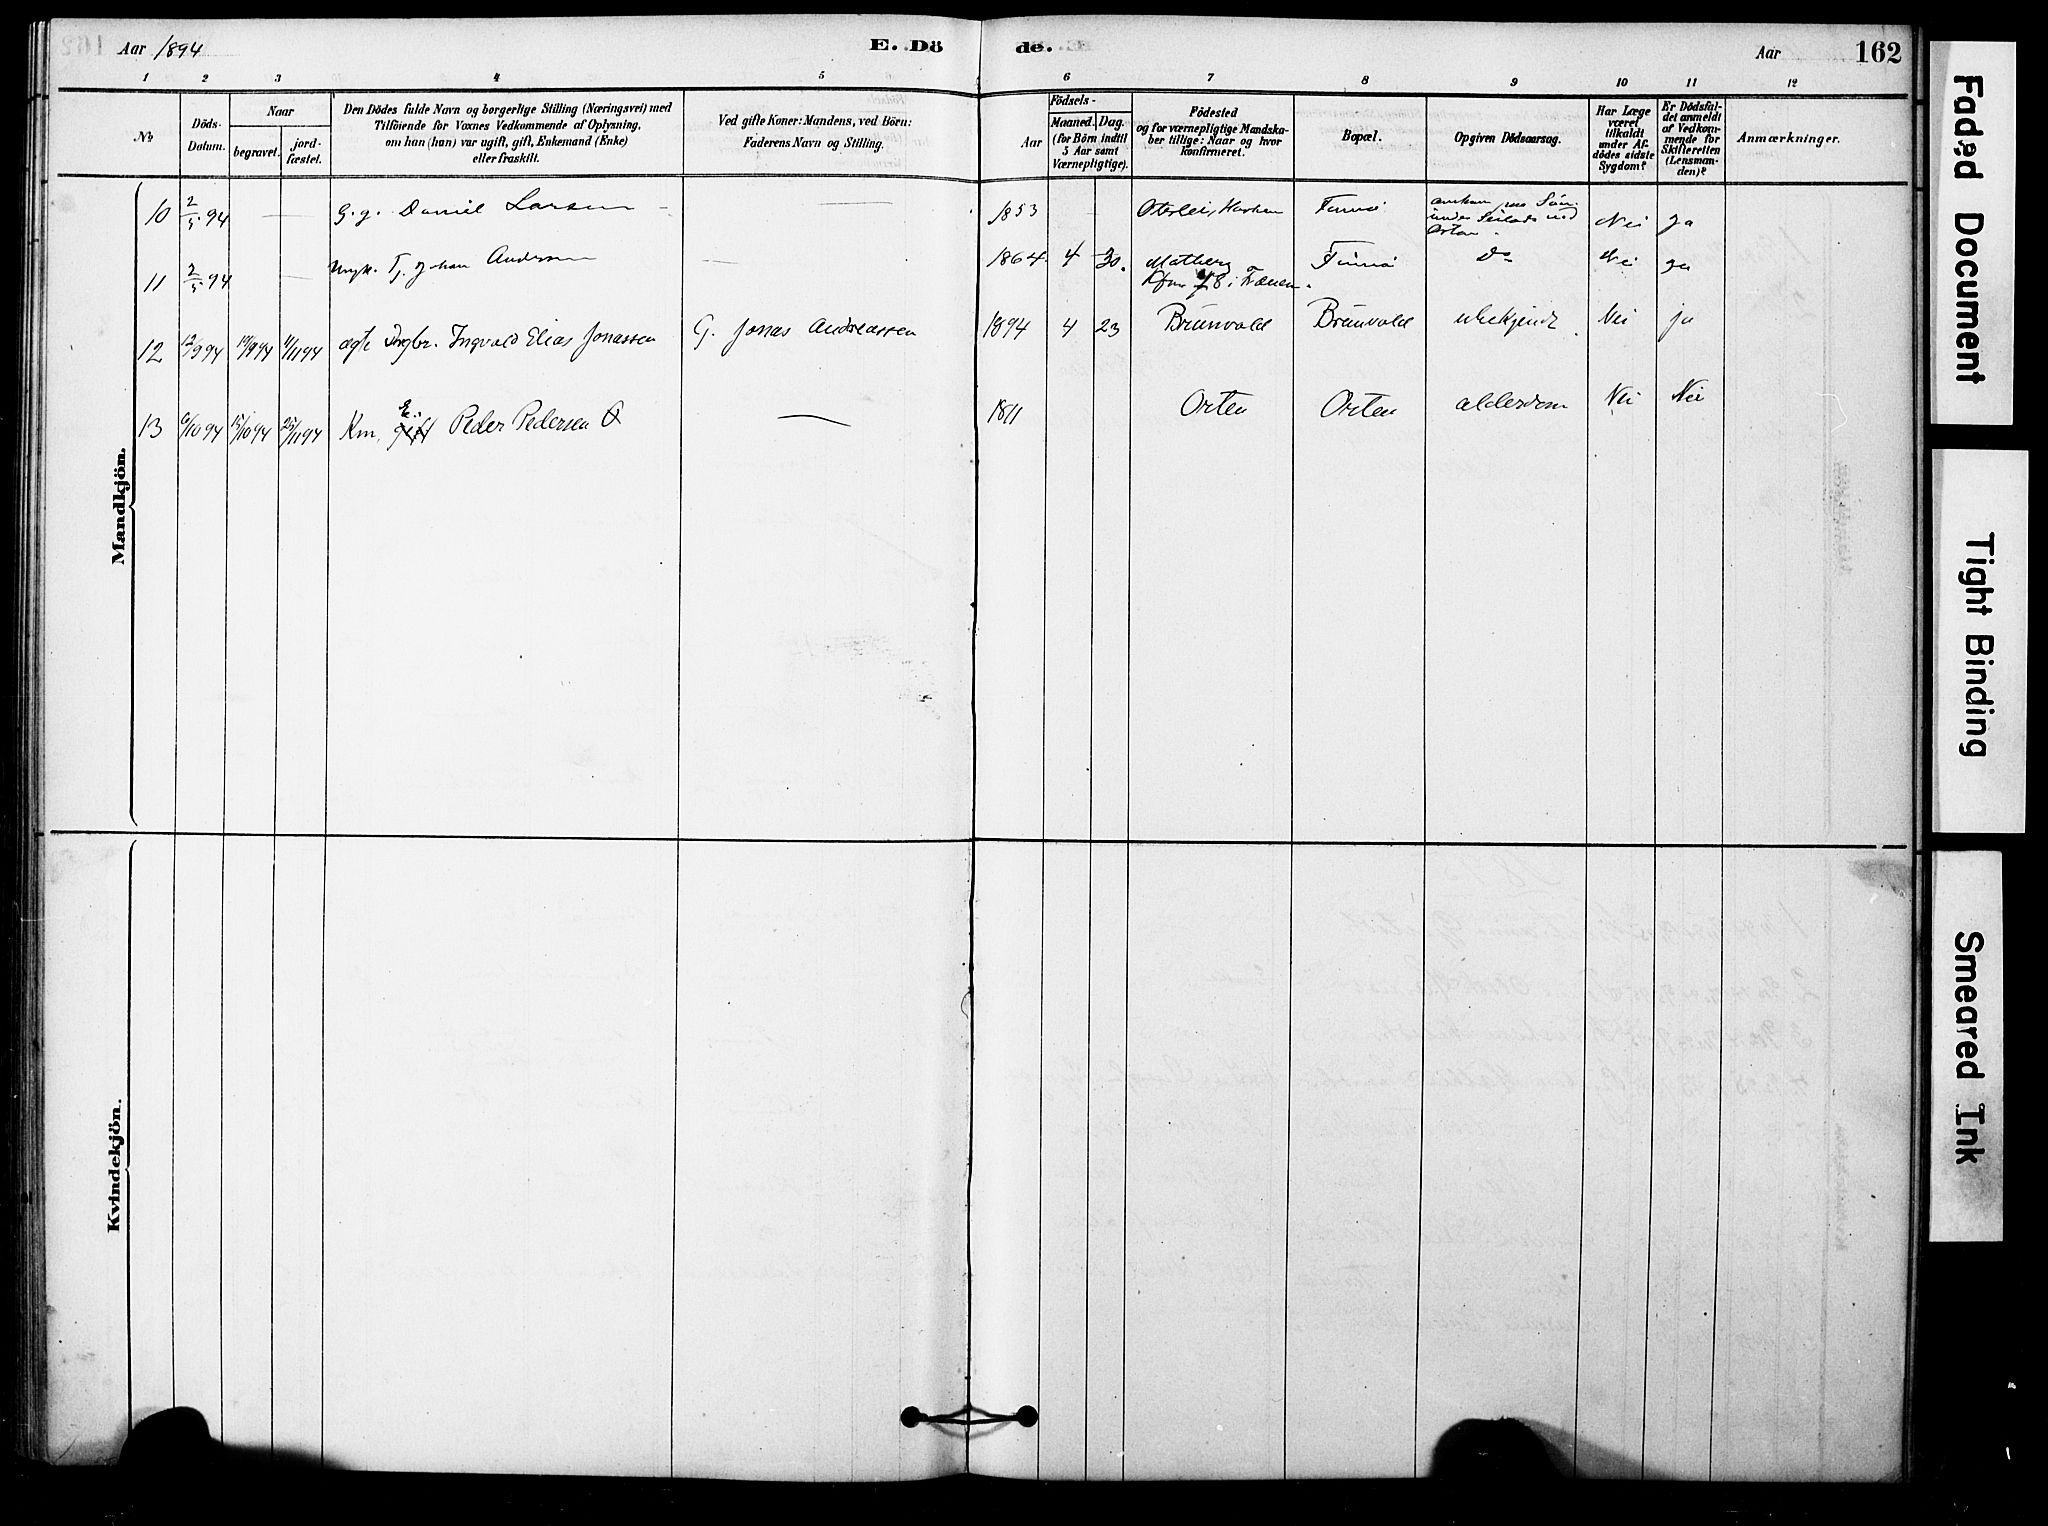 Aar 1894
E. Dö de.
Aar
162
1 2 3 4 5 6 7 8 9 10 11 12
No.
Döds-
Datum.
Naar
begravet.
jord-
fæstet.
Den Dödes fulde Navn og borgerlige Stilling (Næringsvei) med
Tilföiende for Voxnes Vedkommende af Oplysning,
om han (hun) var ugift, gift, Enkemand (Enke)
eller fraskilt.
Ved gifte Koner: Mandens, ved Börn:
Faderens Navn og Stilling.
Aar
Födsels-
Maaned. Dag.
(for Börn indtil
5 Aar samt
Værnepligtige).
Födested
og for værnepligtige Mandska-
ber tillige: Naar og hvor
konfirmeret.
Bopæl.
Opgiven Dödsaarsag.
Har Læge
været
tilkaldt
under Af-
dödes sidste
Sygdom?
Er Dödsfal-
det anmeldt
af Vedkom-
mende for
Skifteretten
(Lensman-
den)?
Anmærkninger.
Mandkjön.
10 2/5 94 — G. g. Daniel Larsen — 1853 Finnö Nei ja
11 2/5 94 — Ungk. Johan Andersen — 1864 4 30. Finnö Do Nei ja
12 12/9 94 11/11 94 Ingvald Elias Jonassen G. Jonas Andreassen 1894 4 23 Brunvold Brunvold ubekjendt Nei ja
13 6/10 94 15/10 94 25/11 94 Km. E. gift Peder Pedersen — 1811 Orten Orten alderdom Nei Nei
Kvindekjön.
Faded Document
Tight Binding
Smeared Ink